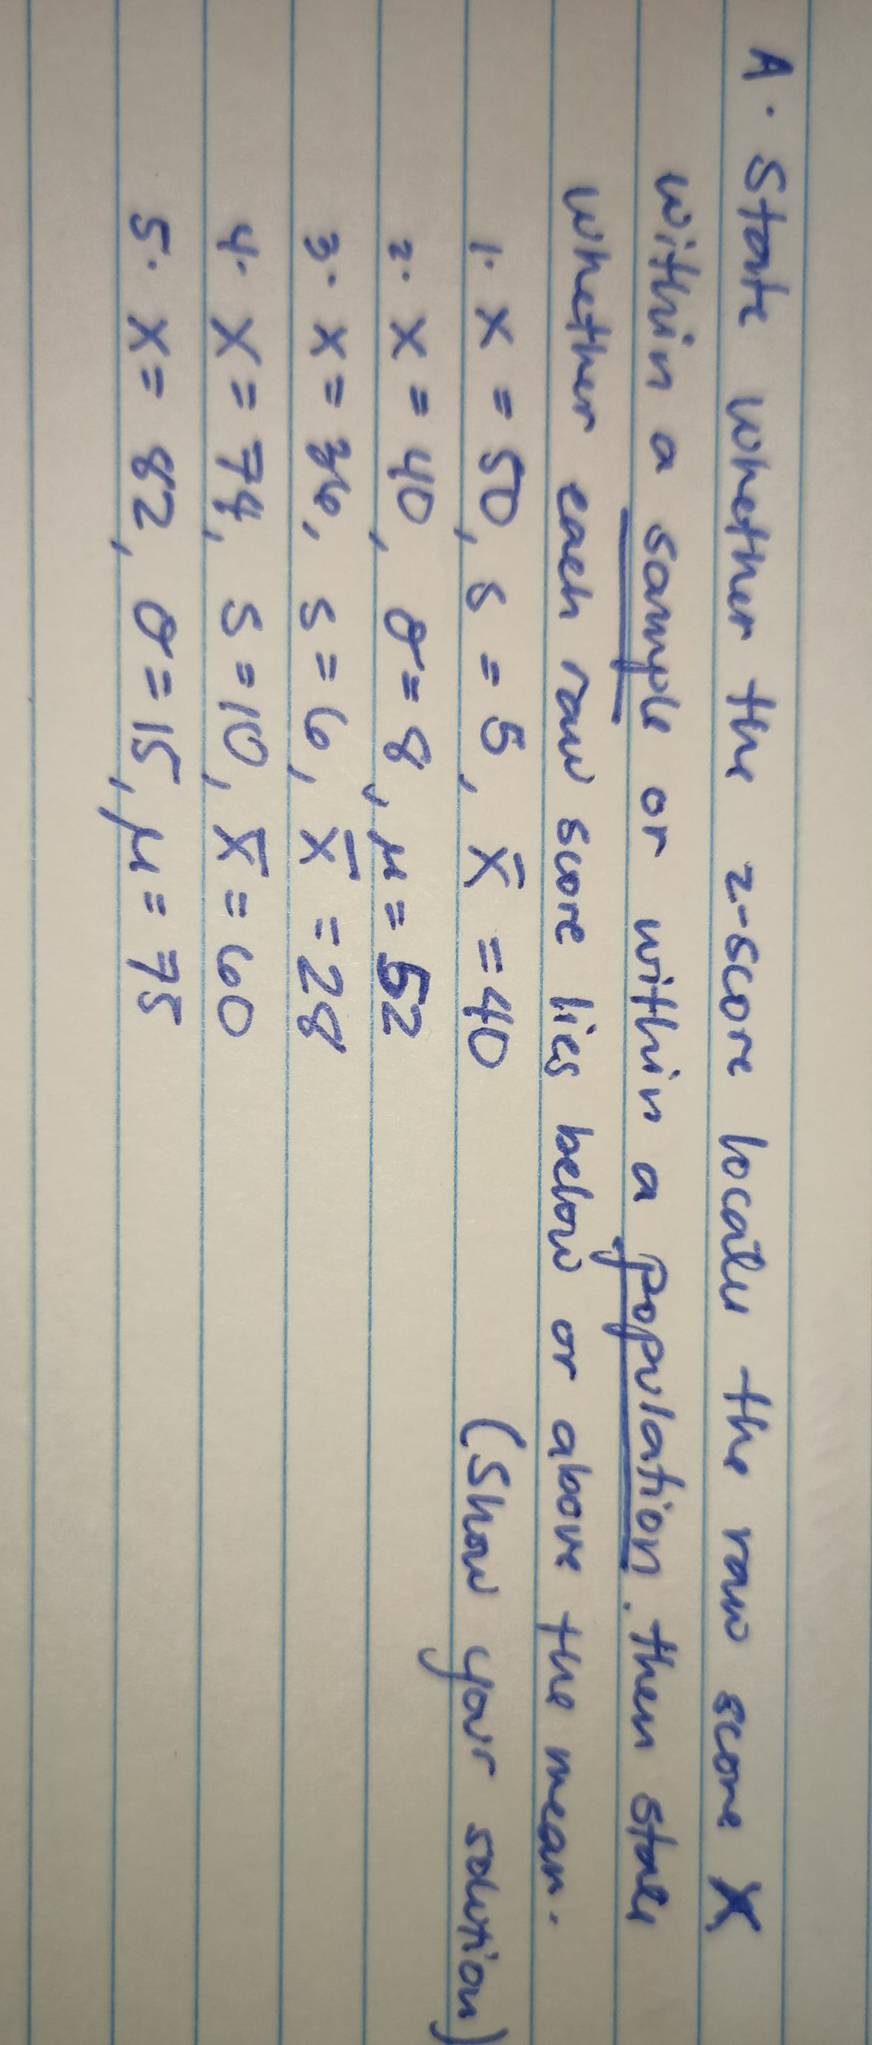 A. State whether the z-score locates the raw score X
within a sample or within a population. then states
whether each raw score lies below or above the mean.
1. X = 50, s = 5, x̄ = 40 (Show your solution)
2. X = 40, σ = 8, μ = 52
3. X = 36, s = 6, x̄ = 28
4. X = 74, s = 10, x̄ = 60
5. X = 82, σ = 15, μ = 75